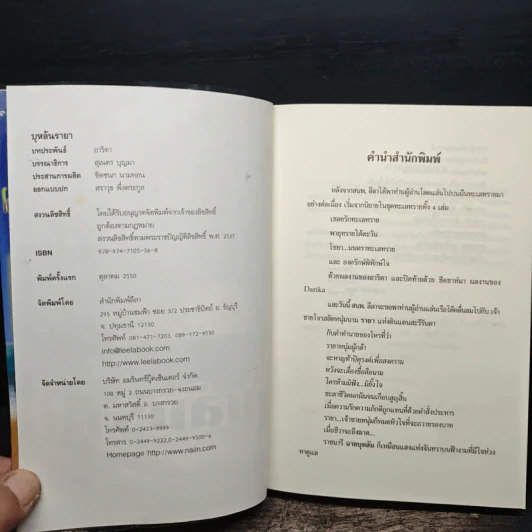 บุหลันรายา
บทประพันธ์ อาริตา
บรรณาธิการ สุเนตร บุญมา
ประสานการผลิต ชิดชนา นามทอน
ออกแบบปก สราวุธ พึ่งตระกูล
สงวนลิขสิทธิ์ โดยได้รับอนุญาตจัดพิมพ์จากเจ้าของลิขสิทธิ์
ถูกต้องตามกฎหมาย
สงวนลิขสิทธิ์ตามพระราชบัญญัติลิขสิทธิ์ พ.ศ. 2537
ISBN 978-974-7105-56-8
พิมพ์ครั้งแรก ตุลาคม 2550
จัดพิมพ์โดย สำนักพิมพ์ลีลา
295 หมู่บ้านชมฟ้า ซอย 3/2 ประชาธิปัตย์ อ. ธัญบุรี
จ. ปทุมธานี 12130
โทรศัพท์ 081-471-7203, 089-172-9530
info@leelabook.com
http://www.leelabook.com
จัดจำหน่ายโดย บริษัท อมรินทร์บุ๊คเซ็นเตอร์ จำกัด
108 หมู่ 2 ถนนบางกรวย-จงถนอม
ต. มหาสวัสดิ์ อ. บางกรวย
จ. นนทบุรี 11130
โทรศัพท์ 0-2423-9999
โทรสาร 0-2449-9222,0-2449-9500-6
Homepage http://www.naiin.com
คำนำสำนักพิมพ์
หลังจากสนพ. ลีลาได้พาท่านผู้อ่านโลดแล่นไปบนผืนทะเลทรายมา
อย่างต่อเนื่อง เริ่มจากนิยายในชุดทะเลทรายทั้ง 4 เล่ม
เชลยรักทะเลทราย
พายุทรายใต้ตะวัน
ไซยา...มนตราทะเลทราย
และ องครักษ์พิทักษ์ใจ
ด้วยผลงานของอาริตา และปิดท้ายด้วย ชีคซาห์มา ผลงานของ
Darika
และวันนี้ สนพ. ลีลาจะขอพาท่านผู้อ่านแล่นเรือโต้คลื่นลมไปกับ เจ้า
ชายโจรสลัดหนุ่มนาม รายา แห่งดินแดนสะรีรันตา
กับคำทำนายของโหรที่ว่า
รายาหนุ่มผู้กล้า
จะหาญท้าปัฐรงค์เพื่อสงคราม
หวังจะเลื่องชื่อลือนาม
ใครห้ามมิฟัง...มิยั้งใจ
ชะตาชีวิตผกผันจนเกือบสูญสิ้น
เมื่อความรักความภักดีถูกแทนที่ด้วยคำสั่งประหาร
รายา...เจ้าชายหนุ่มก็หมดหัวใจที่จะถวายรองบาท
เมื่อชีวาจะถึงฆาต...
ราชนารี ฉายบุหลัน ก็เหมือนแสงแห่งจันทราบนฟ้างามที่มีใจห่วง
หาดูแล